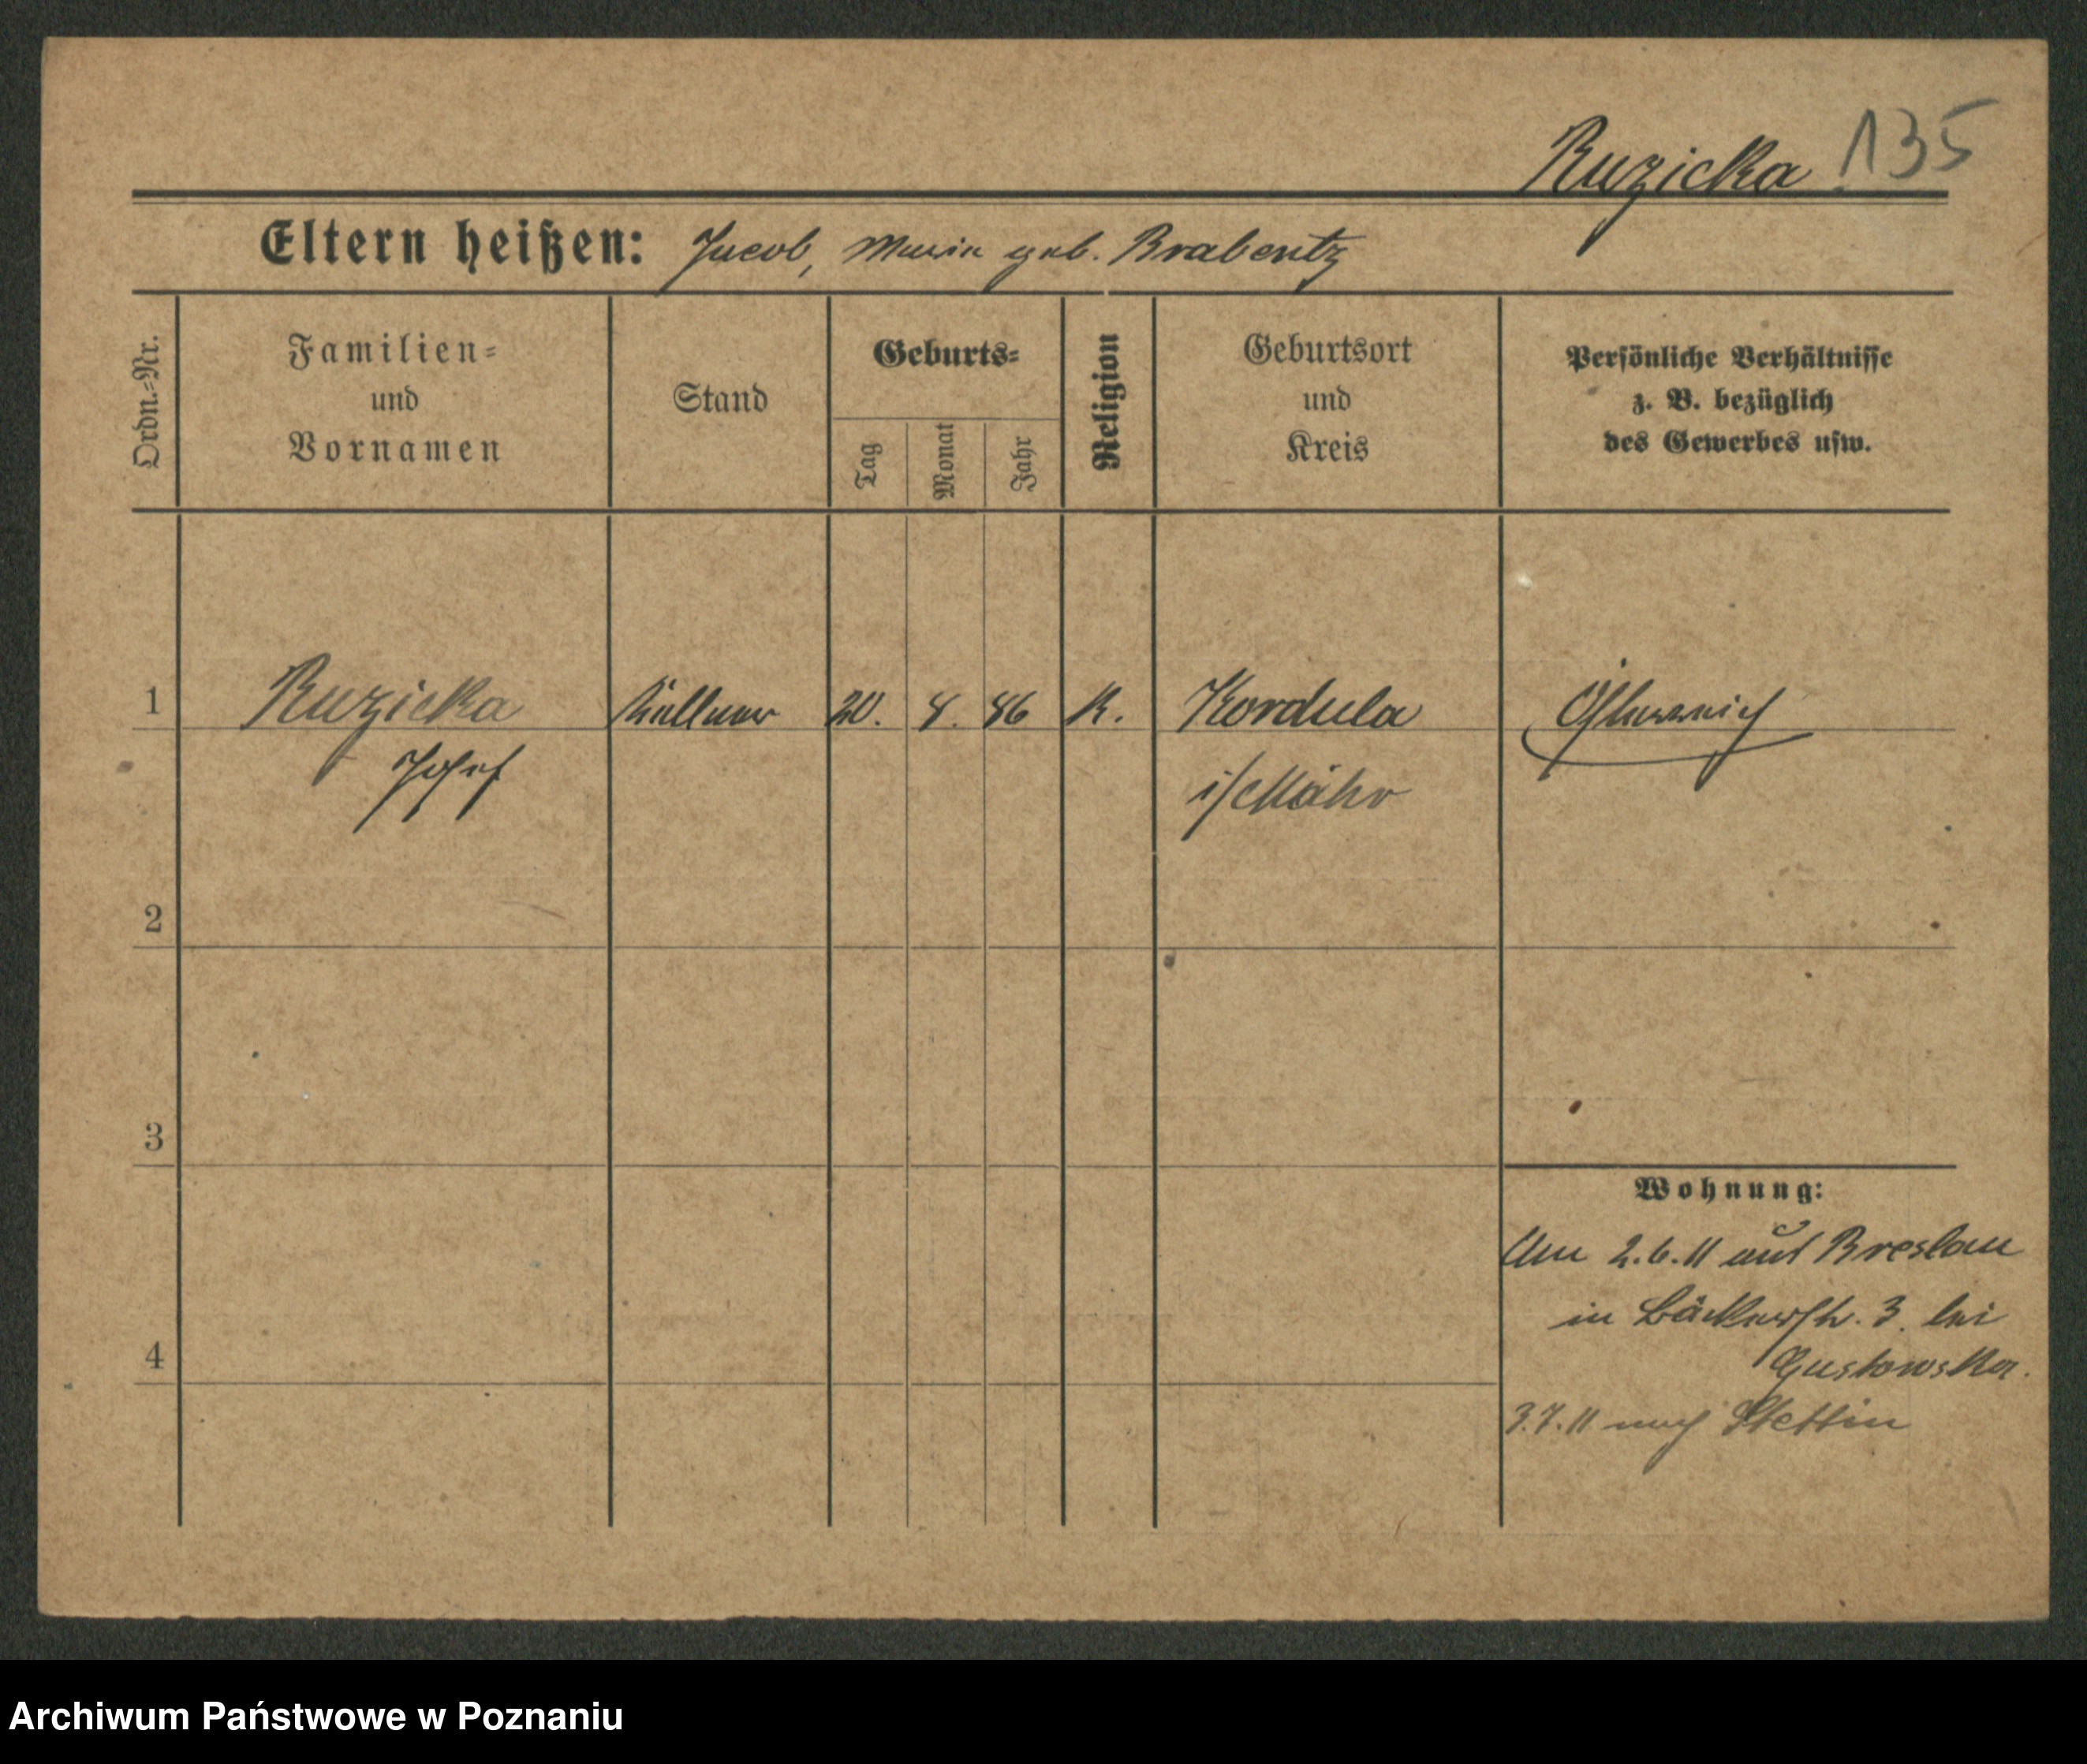 Ruzicka 135
Eltern heißen: Jacob, Maria geb. Brabentz
Ordn.-Nr.
Familien-
und
Vornamen
Stand
Geburts-
Tag
Monat
Jahr
Religion
Geburtsort
und
Kreis
Persönliche Verhältnisse
z. B. bezüglich
des Gewerbes usw.
1 Ruzicka Kellner 20. 8. 86 K. Kordula
Josef i/Mähr
2
3
4
Wohnung:
Am 2.6.11 aus Breslau
in Bäckerstr. 3. bei
3.7.11 nach Stettin
Archiwum Państwowe w Poznaniu